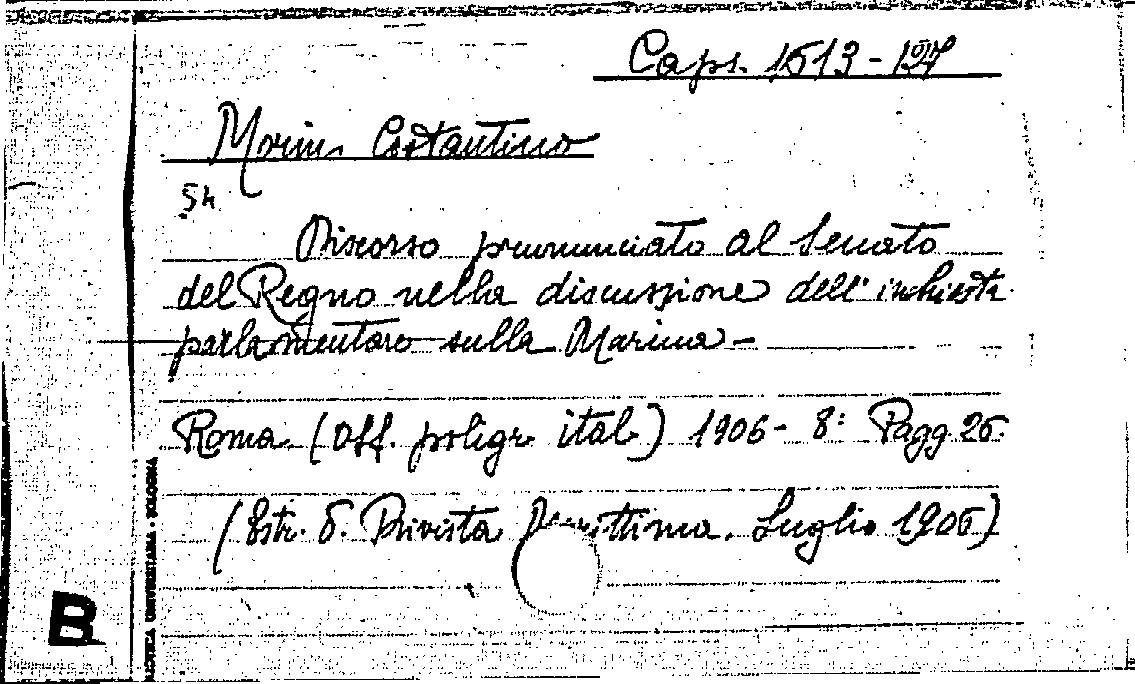 Caps. 1513-127
Morin Costantino
Sh.
Discorso pronunciato al Senato
del Regno nella discussione dell'inchiesta
parlamentare sulla Marina -
Roma (Off. poligr. ital.) 1906 - 8: Pagg 26.
(Estr. d. Rivista Marittima. Luglio 1906)
UNIVERSITARIA - BOLOGNA
B